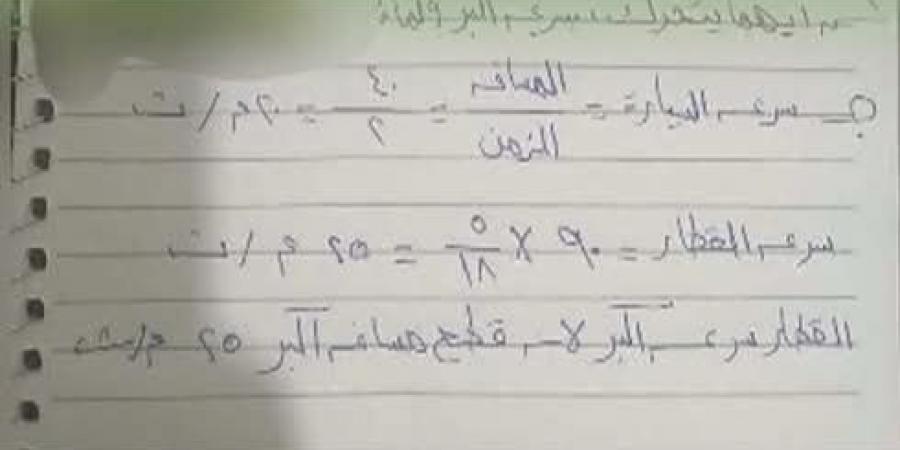 أيهما يتحرك بسرعة أكبر ولماذا
ج- سرعة السيارة = المسافة / الزمن = ٤٠ / ٢ = ٢٠ م / ث
سرعة القطار = ٩٠ × ٥ / ١٨ = ٢٥ م / ث
القطار سرعته أكبر لأنه قطع مسافة أكبر ٢٥ م/ث